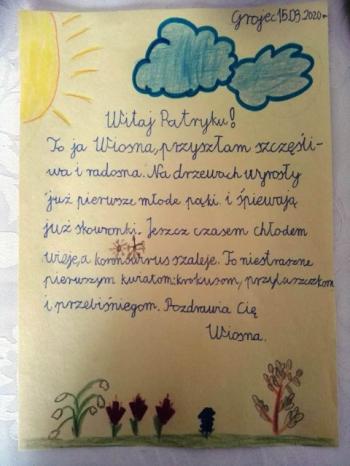 Grojec 15.03.2020r
Witaj Patryku!
To ja Wiosna, przyszłam szczęśli-
wa i radosna. Na drzewach wyrosły
już pierwsze młode pąki i śpiewają
już skowronki. Jeszcz czasem chłodem
wieje, a koronawirus szaleje. To niestraszne
pierwszym kwiatom: krokusom, przylaszczkom
i przebiśniegom. Pozdrawia Cię
Wiosna.